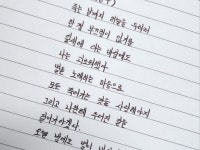 죽는 날까지 하늘을 우러러
한 점 부끄럼이 없기를
잎새에 이는 바람에도
나는 괴로워했다
별을 노래하는 마음으로
모든 죽어가는 것을 사랑해야지
그리고 나한테 주어진 길을
걸어가야겠다
오늘 밤에도 별이